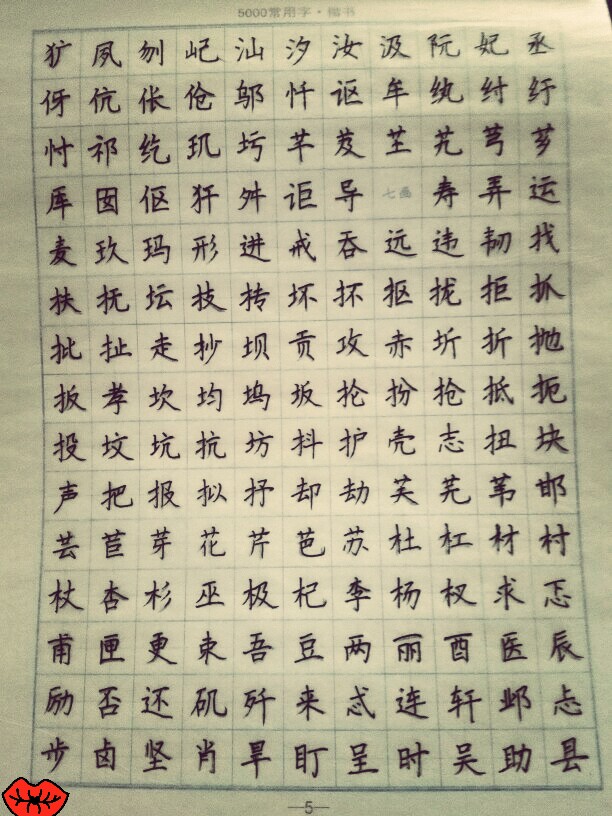 5000常用字·楷书
犷夙刎屺汕汐汝汲阮妃丞
伢伉伥伧邬忏讴牟纨纣纡
忖祁纥玑圬芊芨芏芄芎芗
厍囡伛犴舛讵导七画寿弄运
麦玖玛形进戒吞远违韧找
扶抚坛技抟坏抔抠拢拒抓
批扯走抄坝贡攻赤圻折抛
扳孝坎均坞坂抡扮抢抵扼
投坟坑抗坊抖护壳志扭块
声把报拟抒却劫芙芫苇邯
芸苣芽花芹芭苏杜杠材村
杖杏杉巫极杞李杨杈求忑
甫匣更束吾豆两丽酉医辰
励否还矶歼来忒连轩邺忐
步卤坚肖旱盯呈时吴助县
5